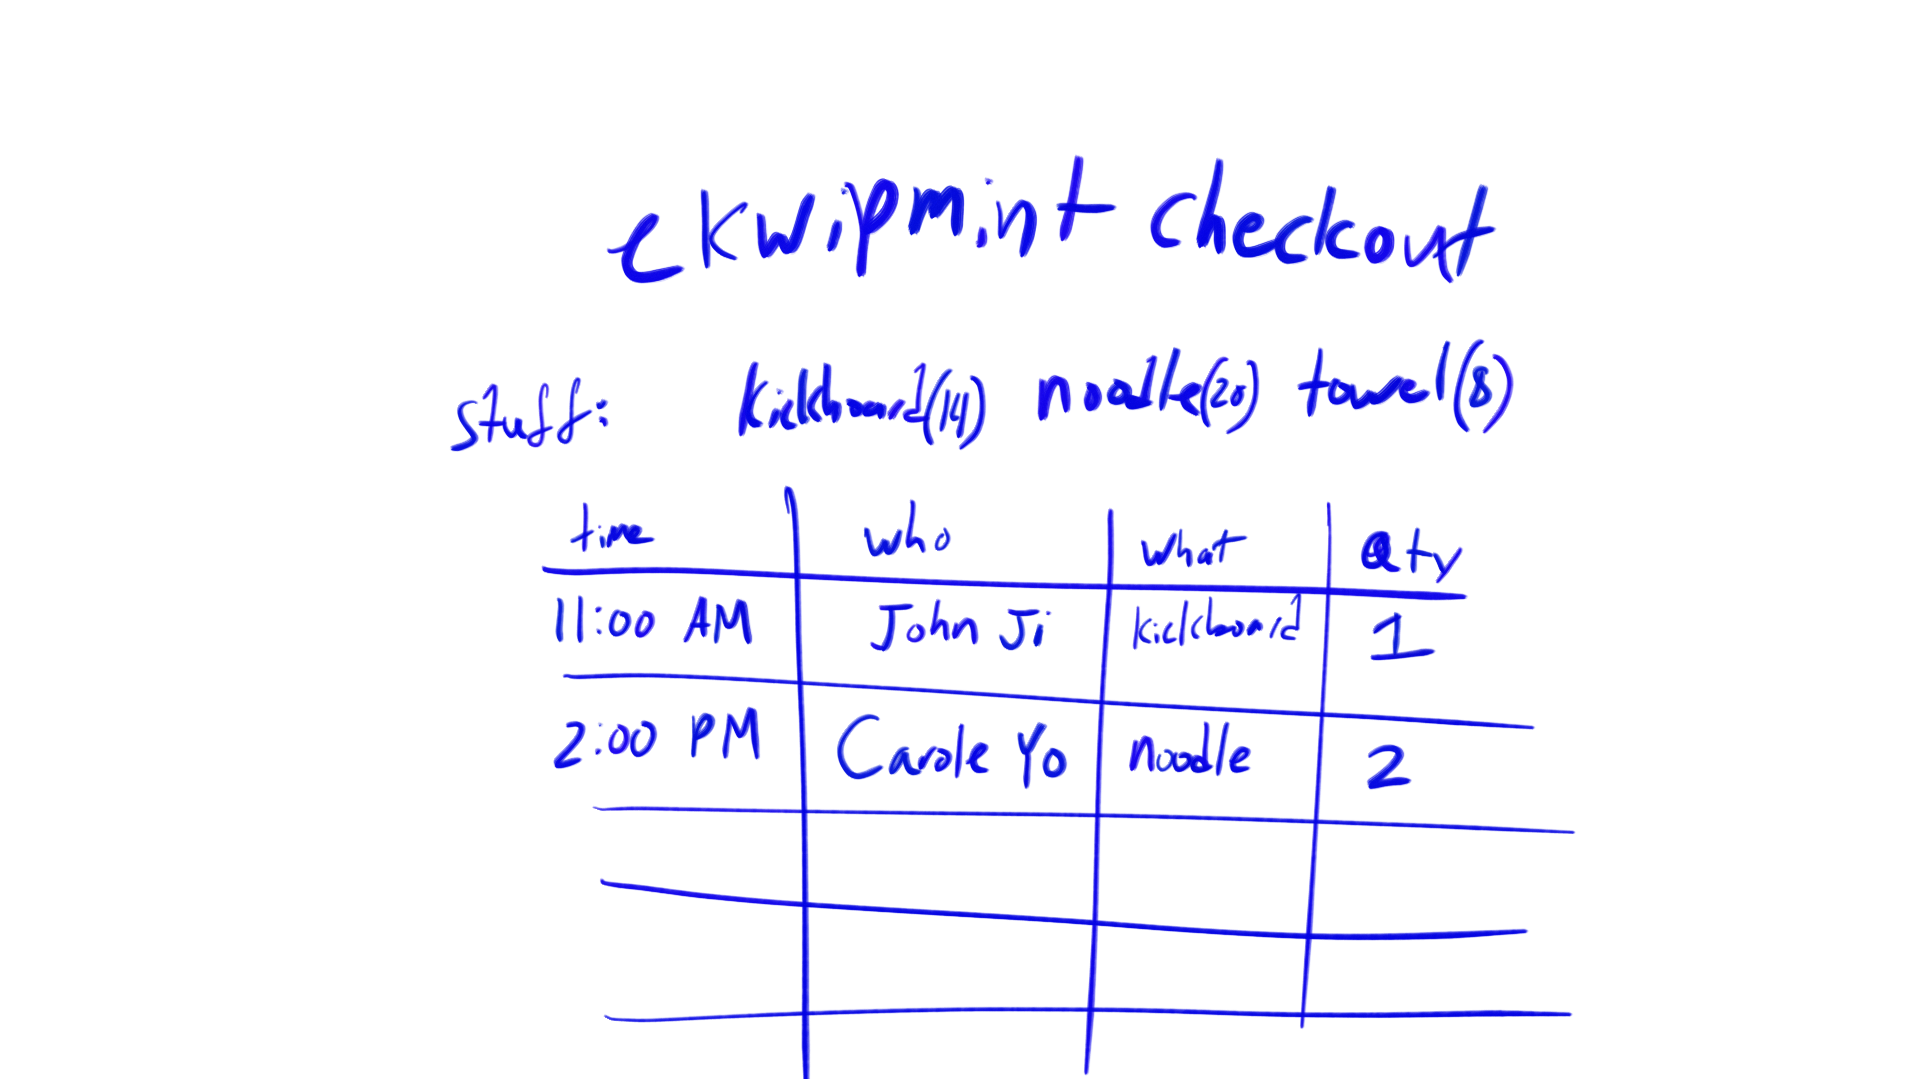 ekwipmint checkout
stuff: kickboard(14) noodle(20) towel(8)
time who what Qty
11:00 AM John Ji kickboard 1
2:00 PM Carole Yo noodle 2